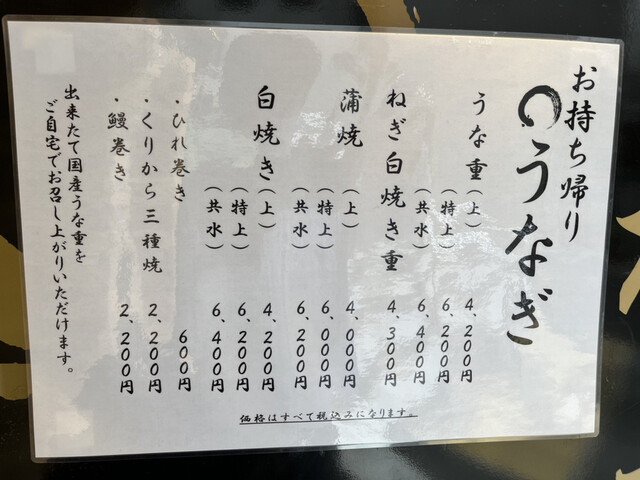 お持ち帰り
うなぎ
うな重（上） 4、200円
（特上） 6、200円
（共水） 6、400円
ねぎ白焼き重 4、300円
蒲焼（上） 4、000円
（特上） 6、000円
（共水） 6、200円
白焼き（上） 4、200円
（特上） 6、200円
（共水） 6、400円
・ひれ巻き 600円
・くりから三種焼 2、200円
・鰻巻き 2、200円
出来たて国産うな重を
ご自宅でお召し上がりいただけます。
価格はすべて税込みになります。